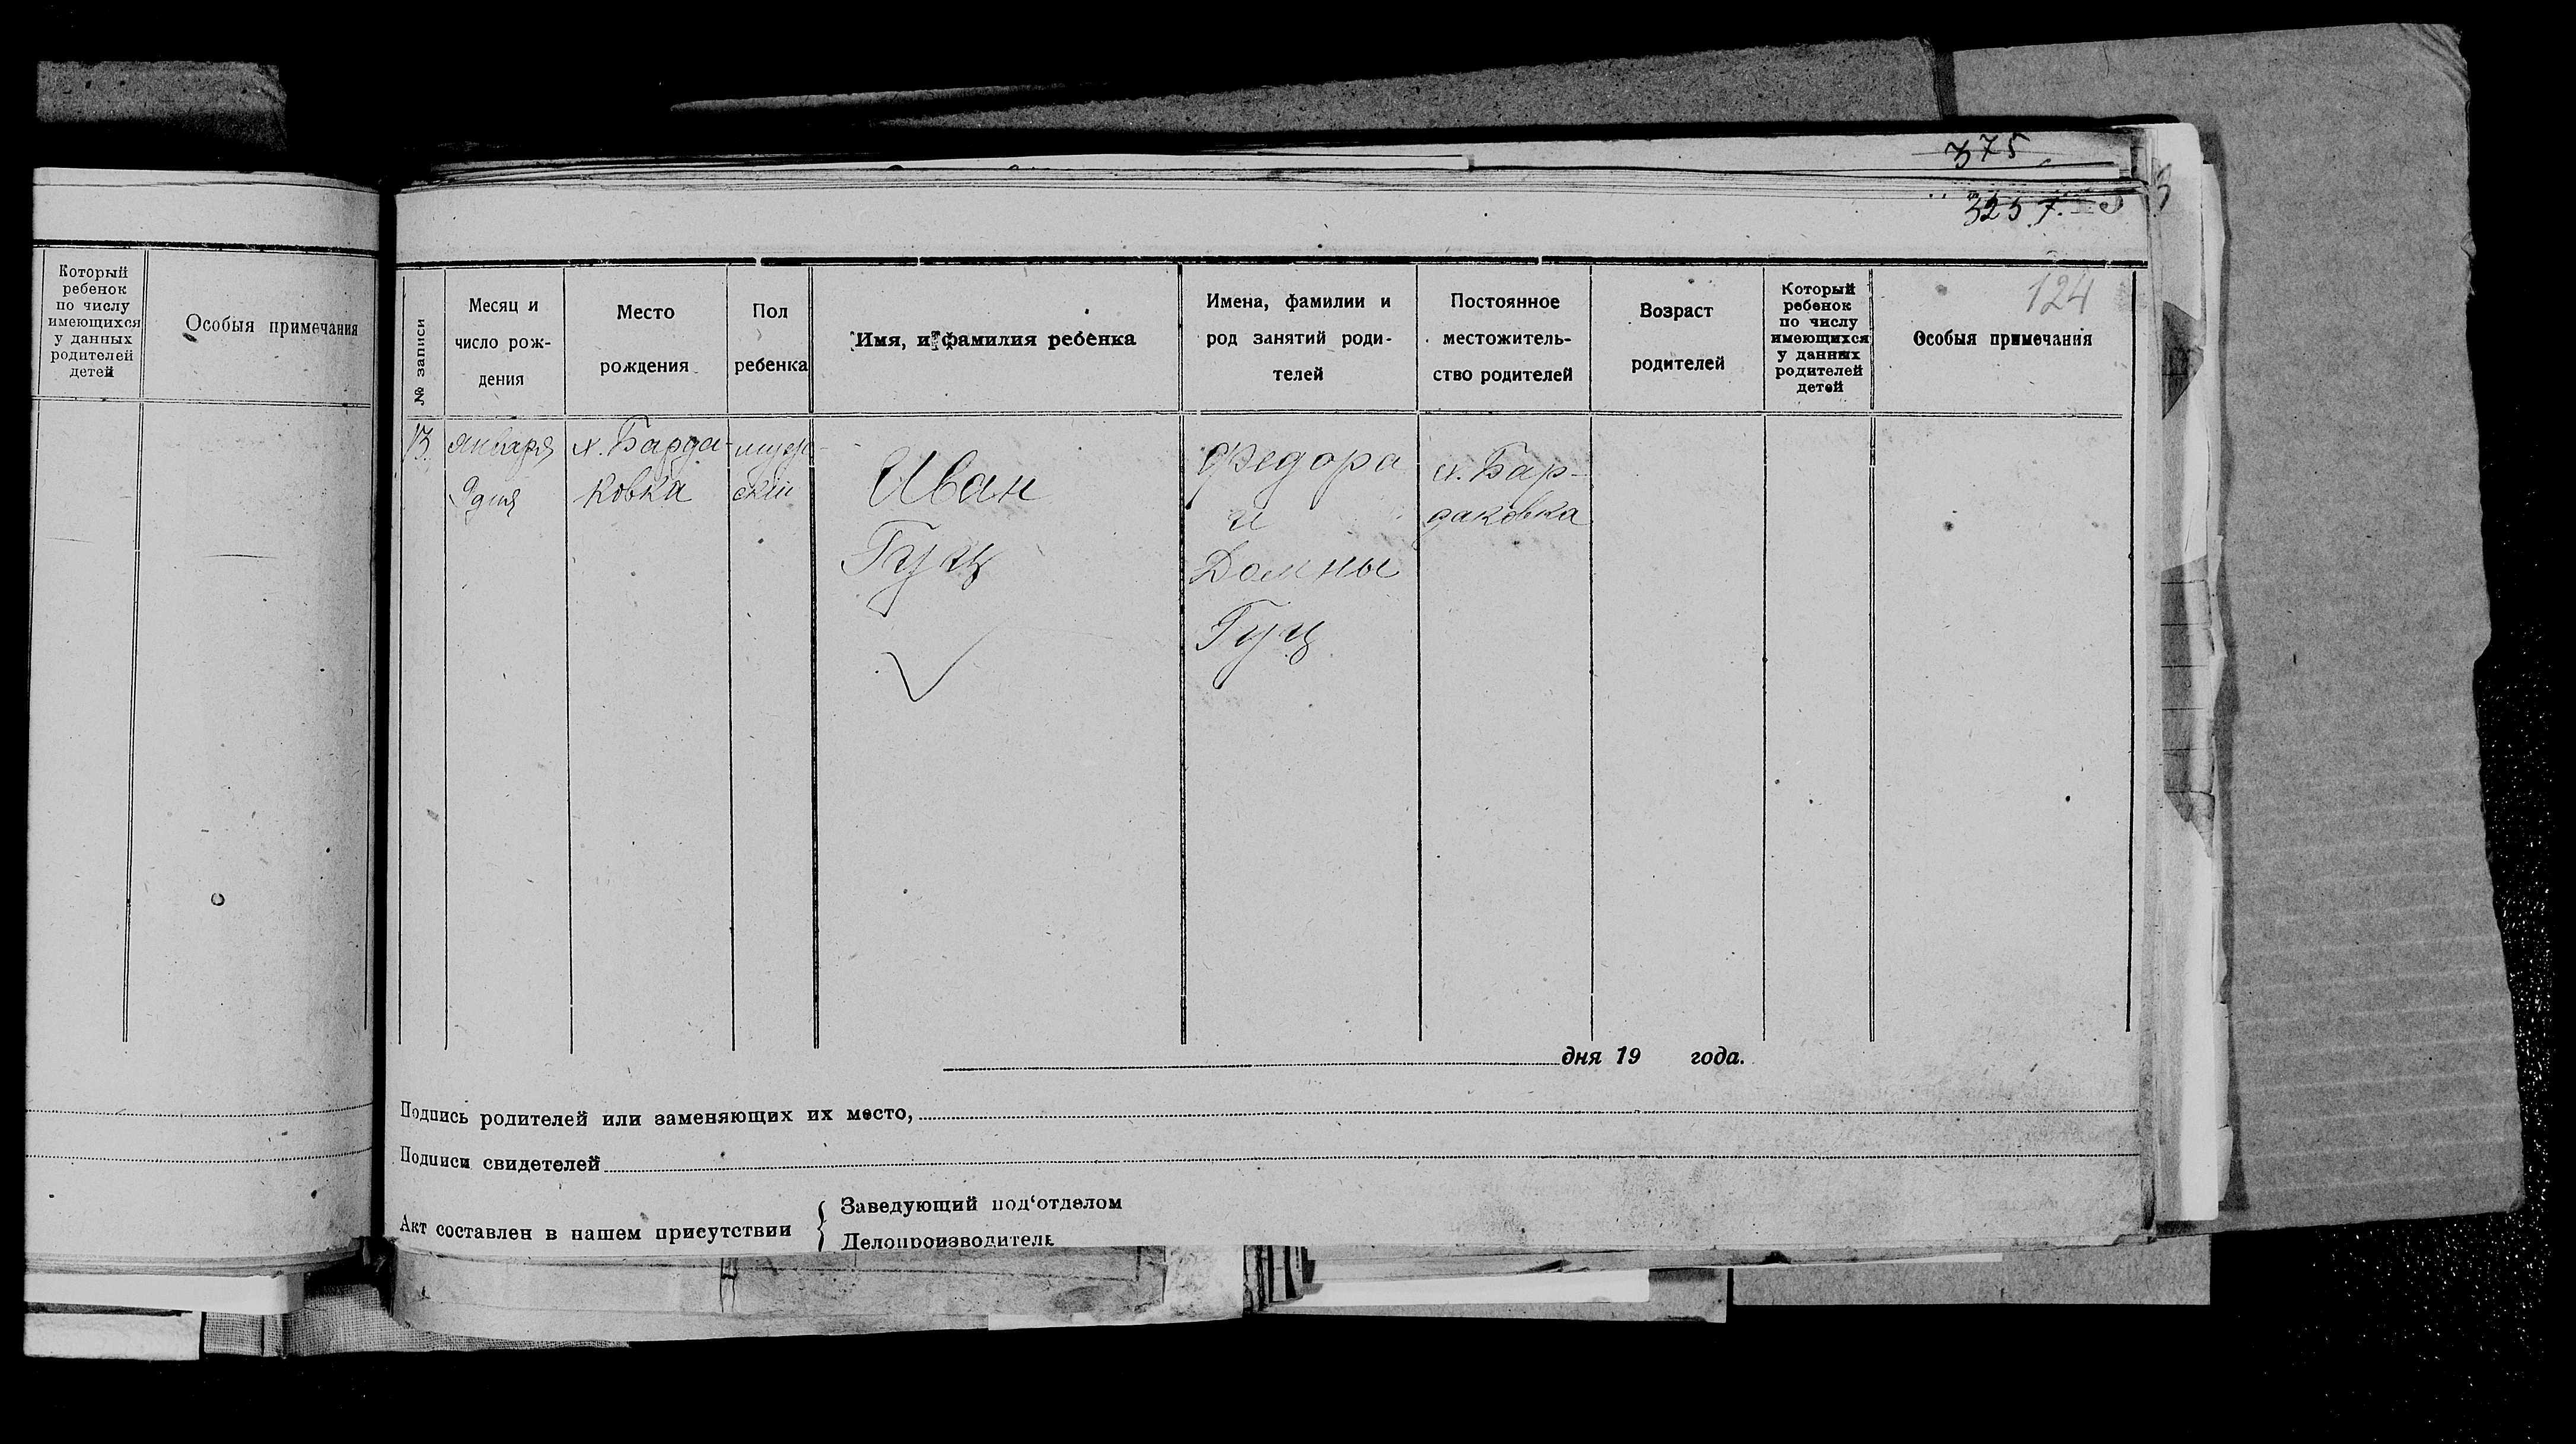 375
3257.
124
Который
ребенок
по числу
имеющихся
у данных
родителей
детей
Особыя примечания
№ записи
Месяц и
число рож-
дения
Место
рождения
Пол
ребенка
Имя, и фамилия ребенка
Имена, фамилии и
род занятий роди-
телей
Постоянное
местожитель-
ство родителей
Возраст
родителей
Который
ребенок
по числу
имеющихся
у данных
родителей
детей
Особыя примечания
13.
января
9 дня
х. Барда-
ковка
муж-
ский
Иван
Гуц
Федора
и
Домны
Гуц
х. Бар-
даковка
дня 19 года.
Подпись родителей или заменяющих их место,
Подписи свидетелей
Акт составлен в нашем присутствии
Заведующий под‘отделом
Делопроизводитель